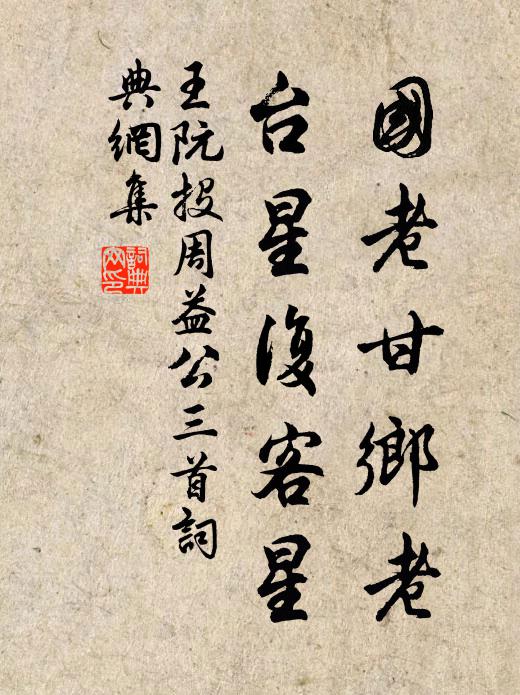 國老甘鄉老
台星復客星
王阮投周益公三首詞
典網集
詞典